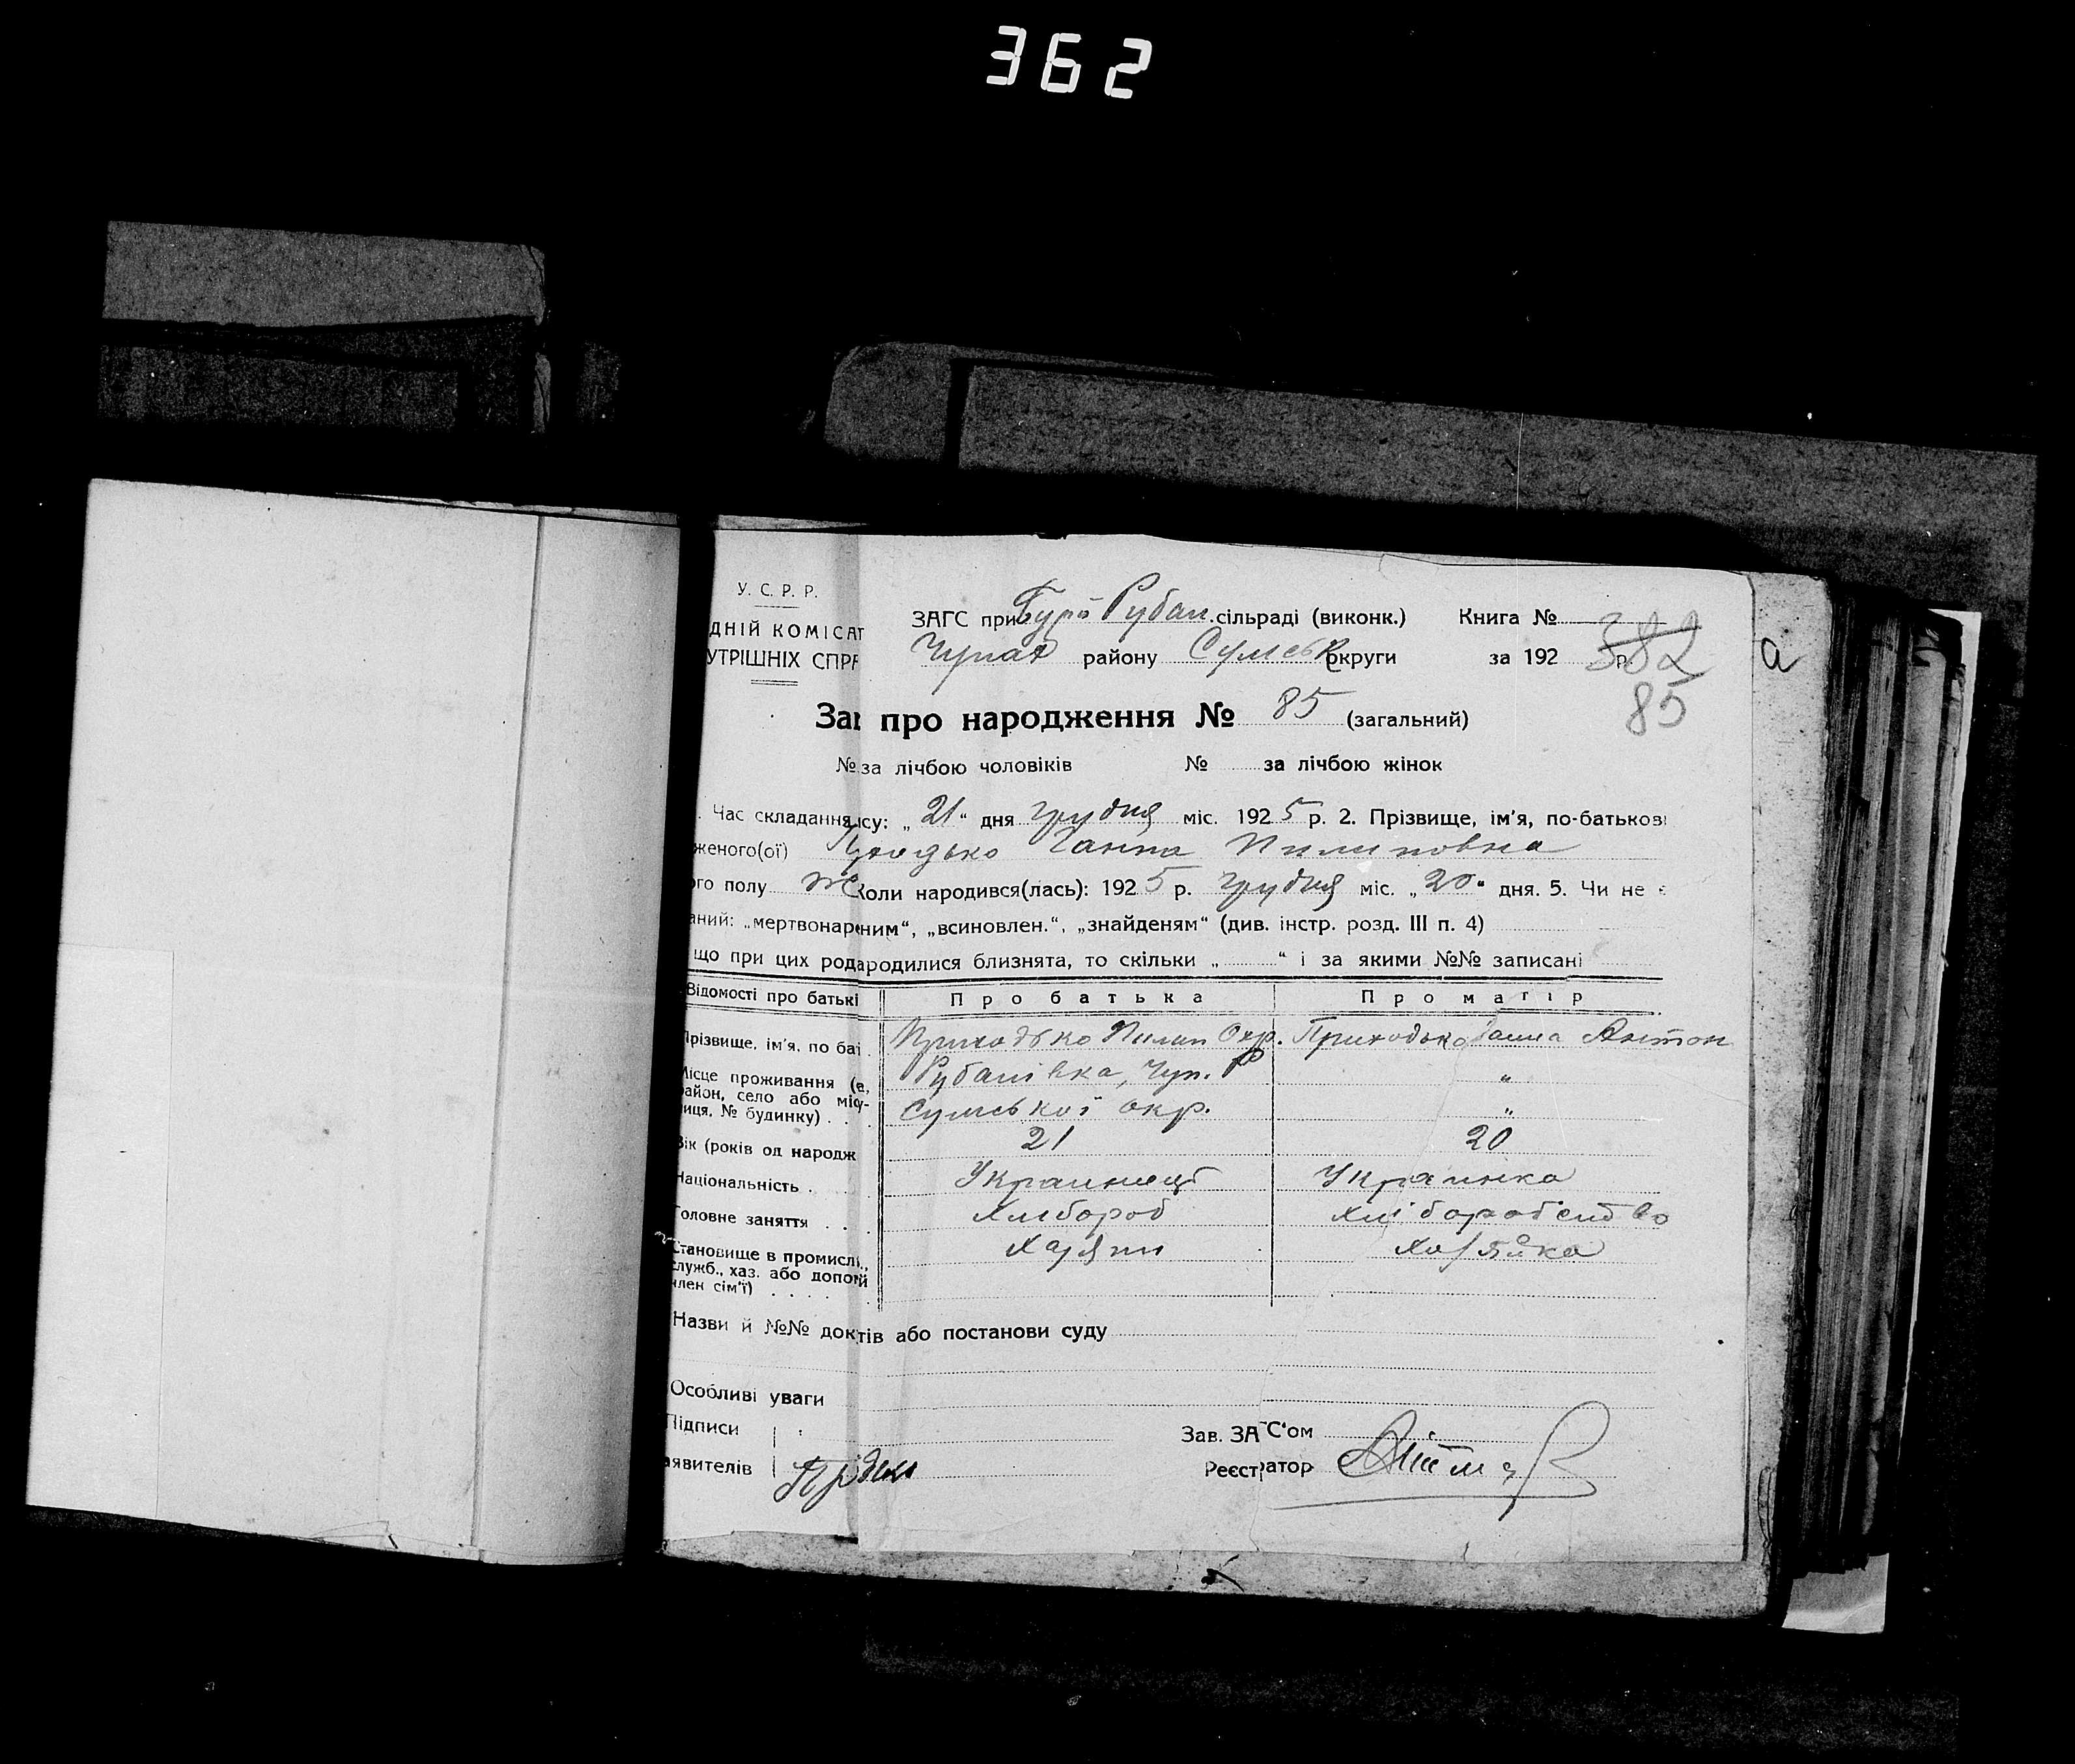 362
У. С. Р. Р.
ДНІЙ КОМІСАР
УТРІШНІХ СПР
ЗАГС при Рубан. сільраді (виконк.) Книга №
Чупах району Сумськ округи за 192 р. 382
а
85
Зап про народження № 85 (загальний)
№ за лічбою чоловіків № за лічбою жінок
. Час складання ису: „ 21 “ дня грудня міс. 192 5 р. 2. Прізвище, ім'я, по-батькові
женого(ої) Ганна Пилиповна
ого полу ж Коли народився(лась): 192 5 р. грудня міс. „ 20 “ дня. 5. Чи не є
аний: „мертвонар ним“, „всиновлен.“, „знайденям“ (див. інстр. розд. III п. 4)
що при цих род ародилися близнята, то скільки „ “ і за якими №№ записані
Відомості про батькі Про батька Про матір
Прізвище, ім'я, по бат Приходько Пилип Охр. Приходько Ганна Антон
Місце проживання (а, Рубанівка, Чуп. р „
район, село або місу-
лиця, № будинку) . . Сумської окр. „
Вік (років од народж 21 20
Національність . Украинець Украинка
Головне заняття . . Хлібороб хлібороб
Становище в промислі., Хазяин Хазяйка
служб., хаз. або допотй
член сім'ї) . . . .
Назви й №№ док тів або постанови суду
Особливі уваги
Підписи Зав. ЗАГС'ом
аявителів Реєстратор